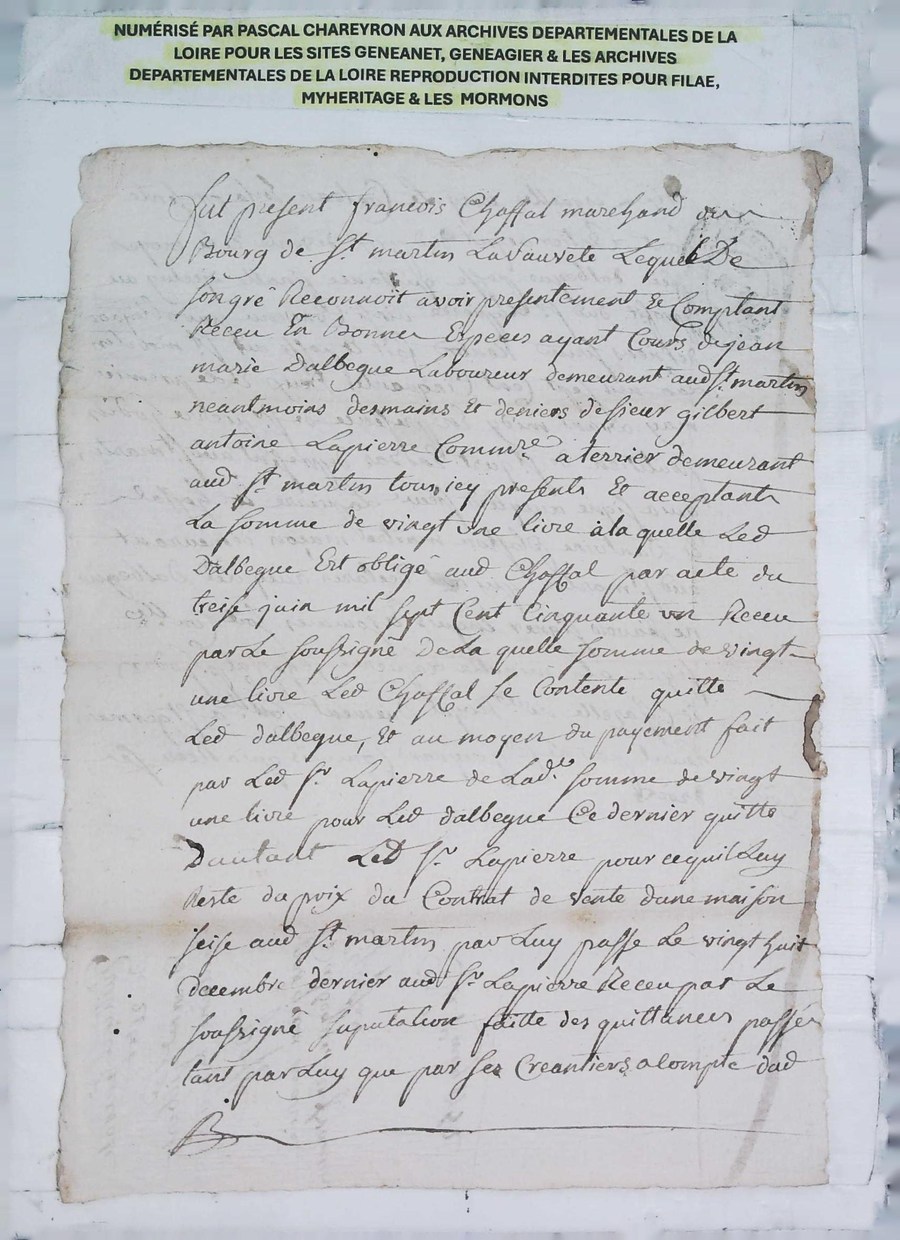 NUMÉRISÉ PAR PASCAL CHAREYRON AUX ARCHIVES DEPARTEMENTALES DE LA
LOIRE POUR LES SITES GENEANET, GENEAGIER & LES ARCHIVES
DEPARTEMENTALES DE LA LOIRE REPRODUCTION INTERDITES POUR FILAE,
MYHERITAGE & LES MORMONS
fut present francois Chaffal marchand du
Bourg de St martin La Sauveté Lequel De
son gré Reconnoit avoir presentement Et Comptant
Receu En Bonnes Especes ayant Cours de jean
marie Dalbegue Laboureur demeurant aud St martin
neantmoins des mains Et deniers de sieur gilbert
antoine Lapierre Commre a terrier demeurant
aud St martin tous icy presents Et acceptants
La somme de vingt une livre a la quelle Led
Dalbegue Est obligé aud Chaffal par acte du
treise juin mil sept Cent Cinquante un Receu
par Le soussigné de La quelle somme de vingt
une livre Led Chaffal se Contente quitte
Led dalbegue, Et au moyen du payement fait
par Led Sr Lapierre de Lade somme de vingt
une livre pour Led dalbegue Ce dernier quitte
Dautant Led Sr Lapierre pour ce quil Luy
Reste du prix du Contrat de vente dune maison
seise aud St martin par Luy passé Le vingt huit
decembre dernier aud Sr Lapierre Receu par Le
soussigné suputation faitte des quittances passées
tant par Luy que par ses Creantiers a compte dud